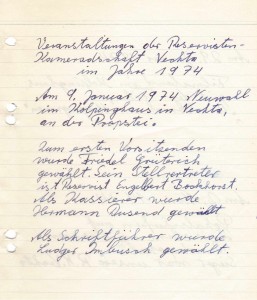 Veranstaltungen der Reservisten-
Kameradschaft Vechta
im Jahre 1974
Am 9. Januar 1974 Neuwahl
im Kolpinghaus in Vechta,
an der Propstei.
Zum ersten Vorsitzenden
wurde Friedel Grüterich
gewählt. Sein Stellvertreter
ist Reservist Engelbert Bockhorst.
Als Kassierer wurde
Hermann Dusend gewählt
Als Schriftführer wurde
Ludger Imbusch gewählt.